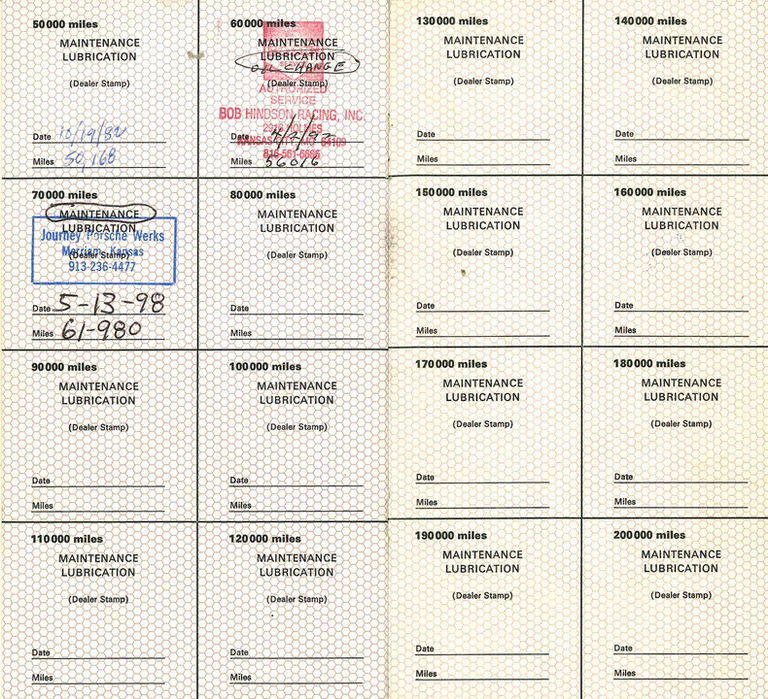 50000 miles
MAINTENANCE
LUBRICATION
(Dealer Stamp)
Date 10/19/82
Miles 50,168
60000 miles
MAINTENANCE
LUBRICATION
OIL CHANGE
(Dealer Stamp)
AUTHORIZED
SERVICE
BOB HINDSON RACING, INC.
2916 HOLMES
KANSAS CITY, MO 64109
816-561-6666
Date 4/2/92
Miles 56016
70000 miles
MAINTENANCE
LUBRICATION
(Dealer Stamp)
Journey Porsche Werks
Merriam, Kansas
913-236-4477
Date 5-13-98
Miles 61-980
80000 miles
MAINTENANCE
LUBRICATION
(Dealer Stamp)
Date
Miles
90000 miles
MAINTENANCE
LUBRICATION
(Dealer Stamp)
Date
Miles
100000 miles
MAINTENANCE
LUBRICATION
(Dealer Stamp)
Date
Miles
110000 miles
MAINTENANCE
LUBRICATION
(Dealer Stamp)
Date
Miles
120000 miles
MAINTENANCE
LUBRICATION
(Dealer Stamp)
Date
Miles
130000 miles
MAINTENANCE
LUBRICATION
(Dealer Stamp)
Date
Miles
140000 miles
MAINTENANCE
LUBRICATION
(Dealer Stamp)
Date
Miles
150000 miles
MAINTENANCE
LUBRICATION
(Dealer Stamp)
Date
Miles
160000 miles
MAINTENANCE
LUBRICATION
(Dealer Stamp)
Date
Miles
170000 miles
MAINTENANCE
LUBRICATION
(Dealer Stamp)
Date
Miles
180000 miles
MAINTENANCE
LUBRICATION
(Dealer Stamp)
Date
Miles
190000 miles
MAINTENANCE
LUBRICATION
(Dealer Stamp)
Date
Miles
200000 miles
MAINTENANCE
LUBRICATION
(Dealer Stamp)
Date
Miles